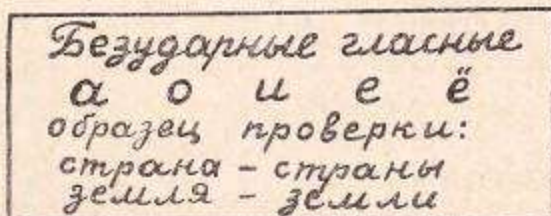 Безударные гласные
а о и е ё
образец проверки:
страна - страны
земля - земли